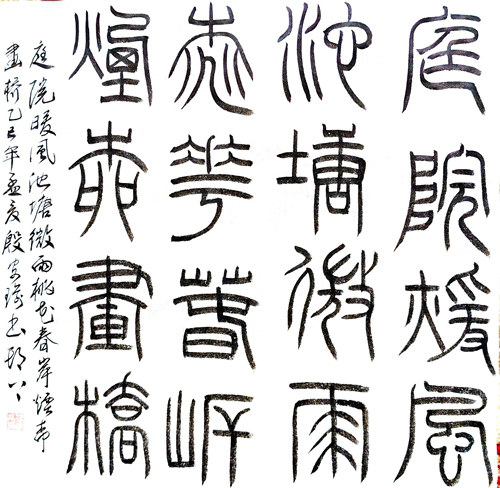 庭院煖風
池塘微雨
桃華春岸
煙市畫橋
庭院暖風池塘微雨桃花春岸煙市
畫橋乙巳年孟夏殷書